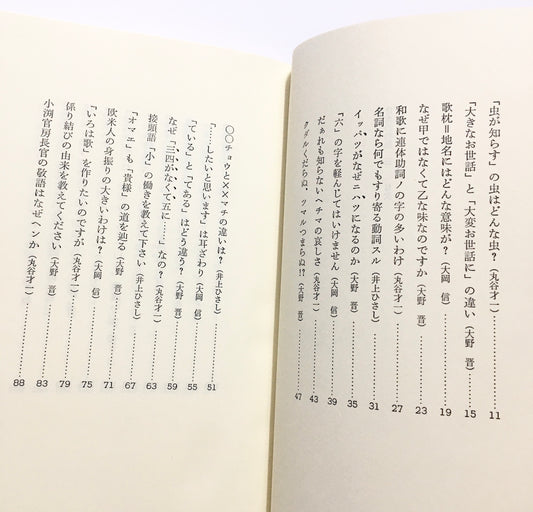 「虫が知らす」の虫はどんな虫?(丸谷才一)……11
「大きなお世話」と「大変お世話に」の違い(大野 晋)……15
歌枕=地名にはどんな意味が?(大岡 信)……19
なぜ甲ではなくて乙な味なのですか(大野 晋)……23
和歌に連体助詞ノの字の多いわけ(丸谷才一)……27
名詞なら何でもすり寄る動詞スル(井上ひさし)……31
イッパツがなぜニハツになるのか(大野 晋)……35
「六」の字を軽んじてはいけません(大岡 信)……39
だぁれも知らないヘチマの哀しさ(丸谷才一)……43
クダルくだらぬ、ツマルつまらぬ!?(大野 晋)……47
〇〇チョウと××マチの違いは?(井上ひさし)……51
「……したいと思います」は耳ざわり(大岡 信)……55
「ている」と「てある」はどう違う?(大野 晋)……59
なぜ「三四がなくて五に……」なの?(丸谷才一)……63
接頭語「小」の働きを教えて下さい(井上ひさし)……67
「オマエ」も「貴様」の道を辿る(大野 晋)……71
欧米人の身振りの大きいわけは?(大岡 信)……75
「いろは歌」を作りたいのですが(丸谷才一)……79
係り結びの由来を教えてください(大野 晋)……83
小渕官房長官の敬語はなぜヘンか(丸谷才一)……88